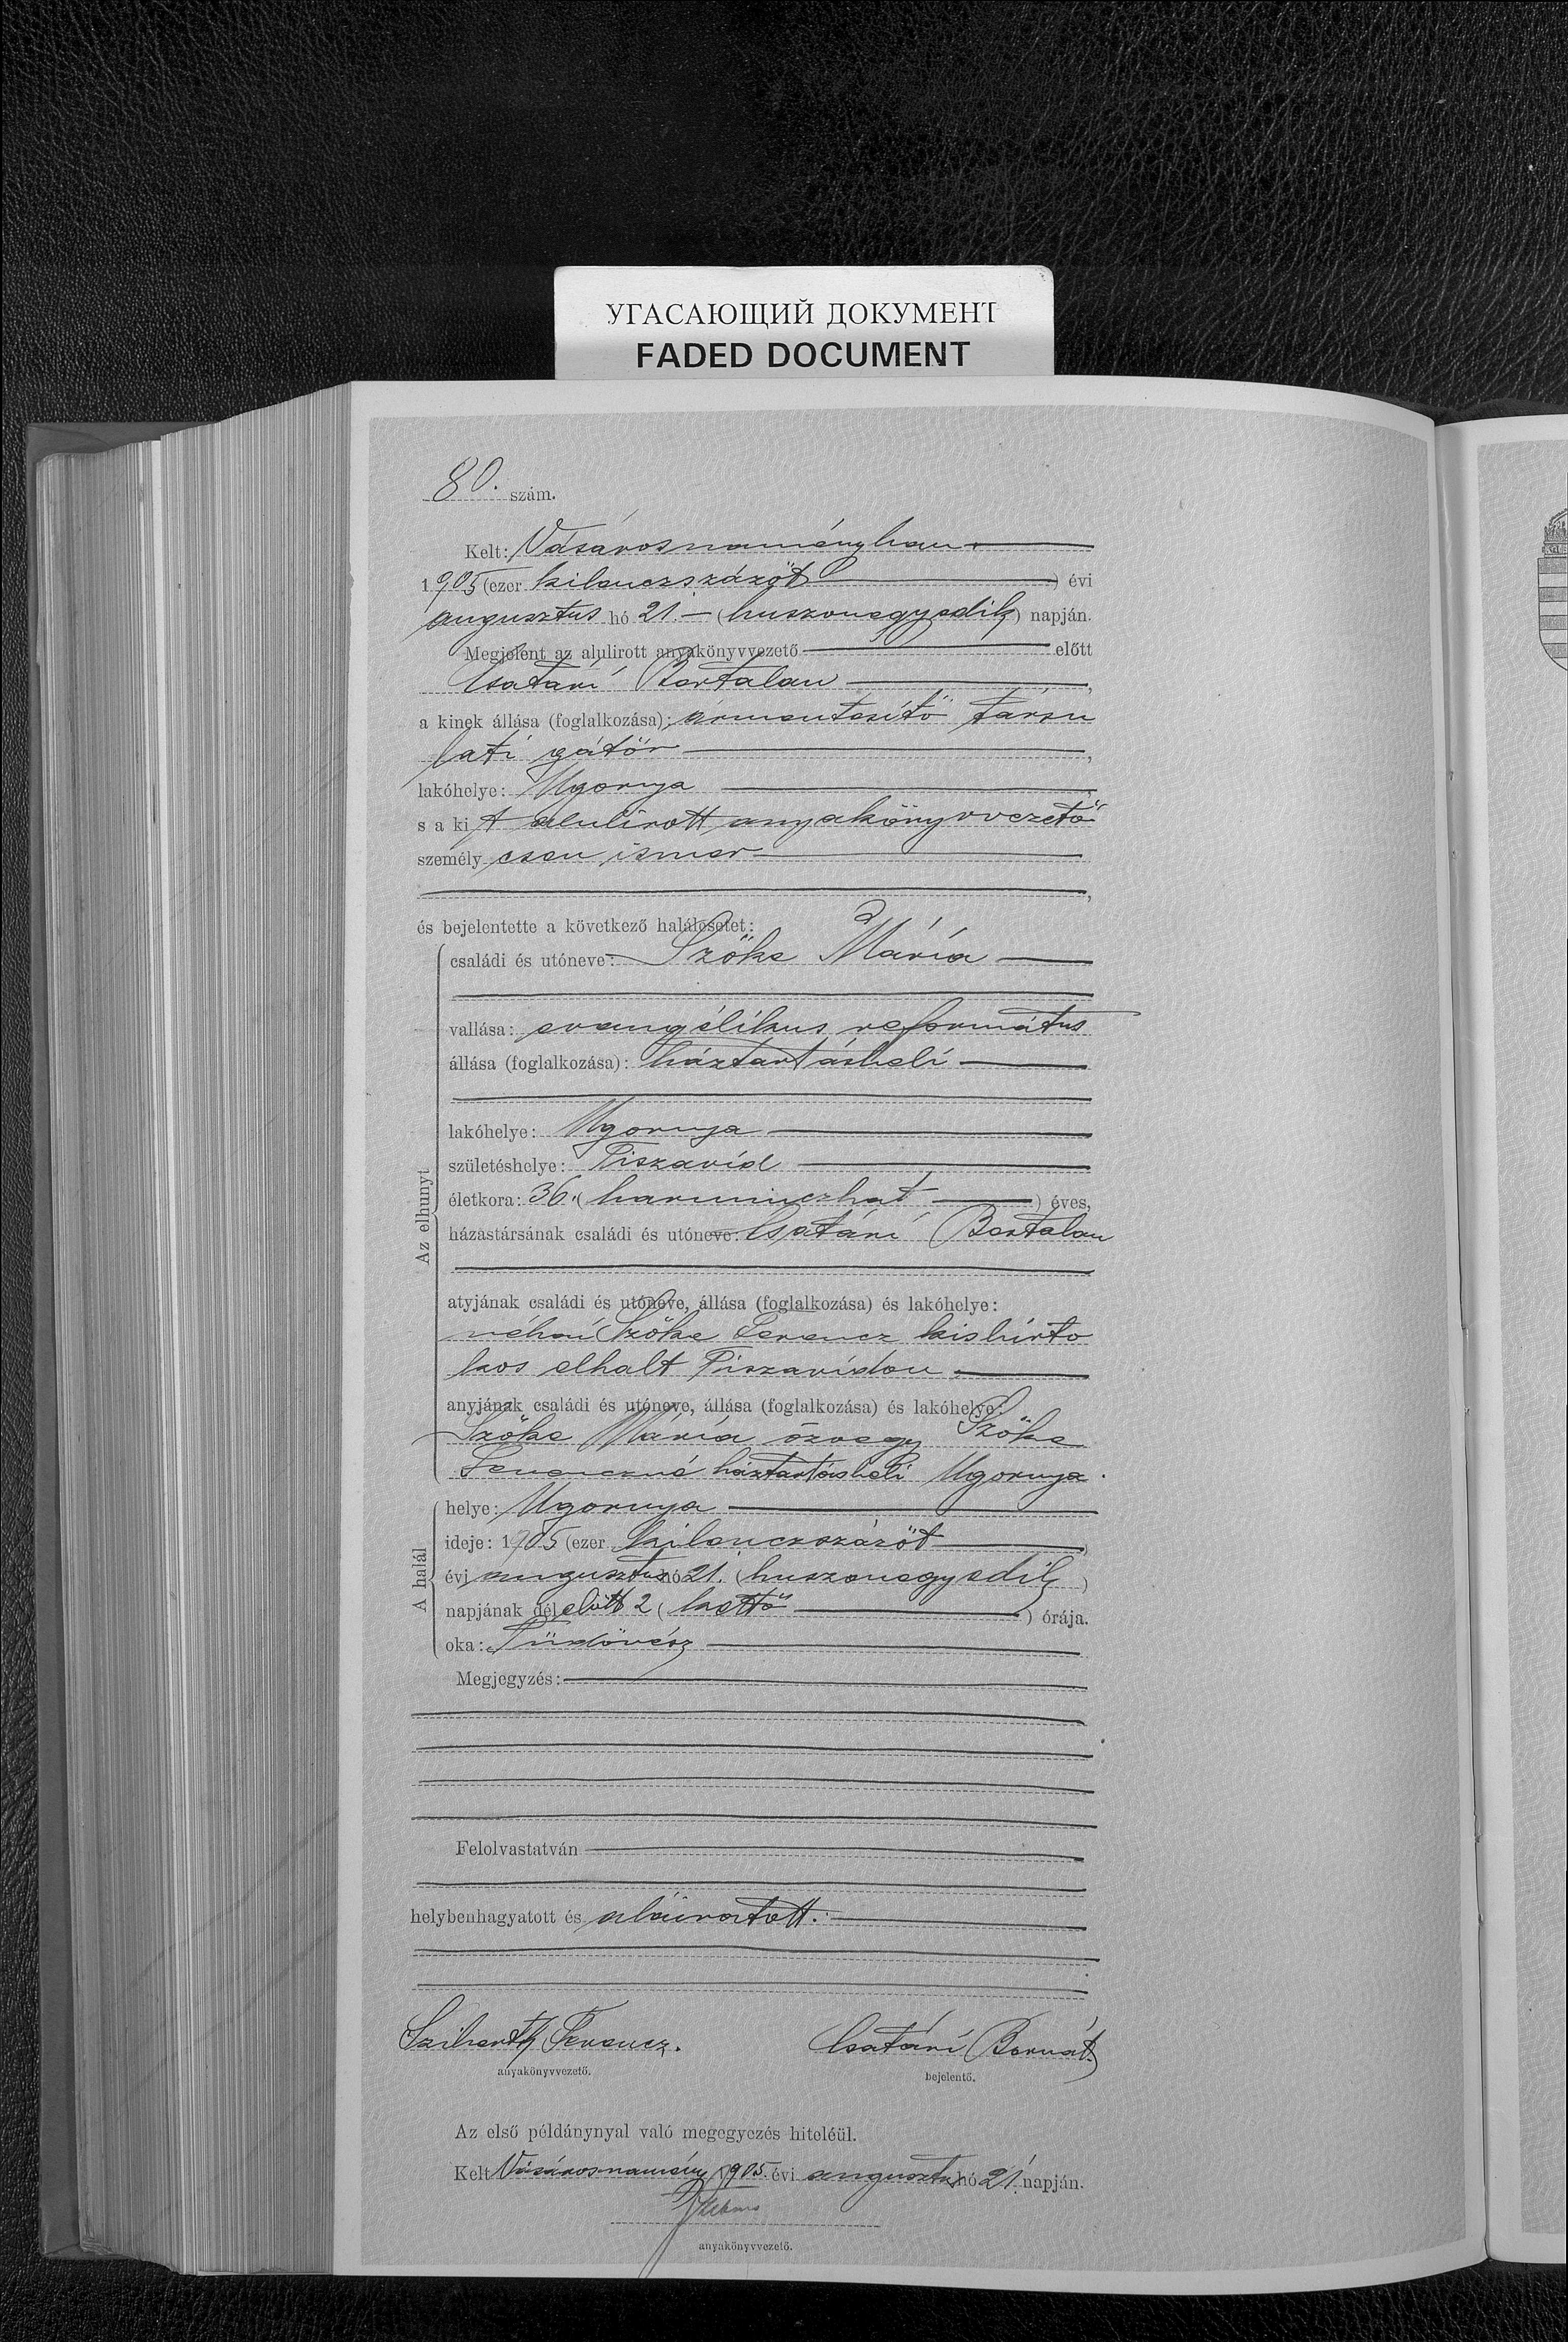 УГАСАЮЩИЙ ДОКУМЕНТ
FADED DOCUMENT
80. szám.
Kelt: Vásárosnaményban
1905 (ezer kilenczszázöt ) évi
augusztus hó 21. (huszonegyedik) napján.
Megjelent az alulirott anyakönyvvezető előtt
Csatári Bertalan,
a kinek állása (foglalkozása): ármentesítő társu
lati gátőr,
lakóhelye: Ugornya,
s a kit alulírott anyakönyvvezető
személyesen ismer
,
és bejelentette a következő halálesetet:
Az elhunyt
családi és utóneve: Szőke Mária
vallása: evangélikus református
állása (foglalkozása): háztartásbeli
lakóhelye: Ugornya
születéshelye: Tiszavid
életkora: 36. (harminczhat ) éves,
házastársának családi és utóneve: Csatári Bertalan
atyjának családi és utóneve, állása (foglalkozása) és lakóhelye:
néhai Szőke Ferencz kisbirto
kos elhalt Tiszavidon
anyjának családi és utóneve, állása (foglalkozása) és lakóhelye:
Szőke Mária özvegy Szőke
Ferenczné háztartásbeli Ugornya.
A halál
helye: Ugornya
ideje: 1905 (ezer kilenczszázöt )
évi augusztus hó 21. (huszonegyedik )
napjának délelőtt 2 (kettő ) órája.
oka: Tüdővész
Megjegyzés:
Felolvastatván
helybenhagyatott és aláiratott.
Ferencz. Csatári Bernát
anyakönyvvezető. bejelentő.
Az első példánynyal való megegyezés hiteléül.
Kelt Vásárosnamény 1905. évi augusztus hó 21. napján.
anyakönyvvezető.